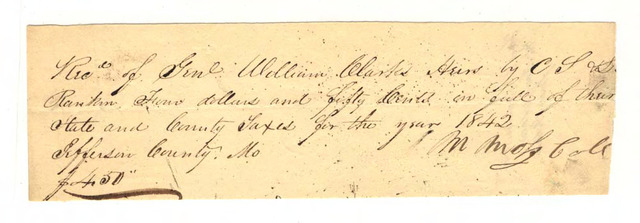 Recd of Genl William Clarks Heirs by C S & S.
Rankin Four dollars and fifty Cents in full of their
State and County Taxes for the year 1842
Jefferson County. Mo
M Moss Coll
$4.50"